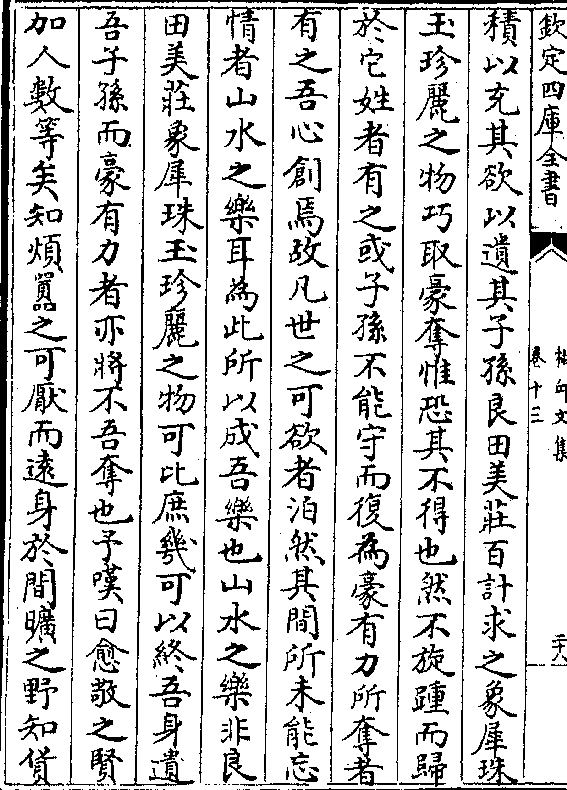 欽定四庫全書
文集
卷十三
二十八
積以充其欲以遺其子孫良田美莊百計求之象犀珠
玉珍麗之物巧取豪奪惟恐其不得也然不旋踵而歸
於它姓者有之或子孫不能守而復為豪有力所奪者
有之吾心創焉故凡世之可欲者泊然其間所未能忘
情者山水之樂耳為此所以成吾樂也山水之樂非良
田美莊象犀珠玉珍麗之物可比庶幾可以終吾身遺
吾子孫而豪有力者亦將不吾奪也予嘆曰愈敬之賢
加人數等矣知煩囂之可厭而遠身於間曠之野知貨